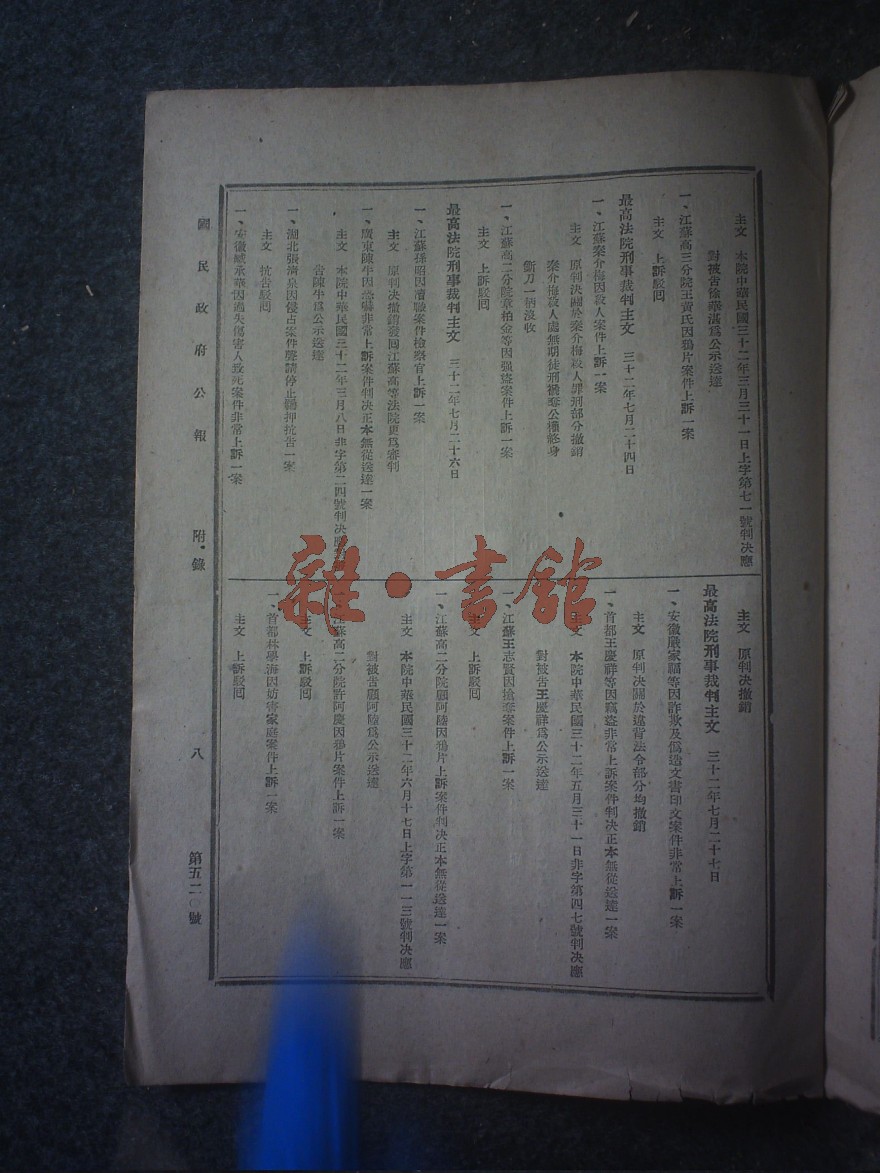 主文 本院中華民國三十二年三月三十一日上字第七一號判决應
對被告徐燊湛爲公示送達
一、江蘇高三分院王黃氏因鴉片案件上訴一案
主文 上訴駁囘
最高法院刑事裁判主文 三十二年七月二十四日
一、江蘇秦介梅因殺人案件上訴一案
主文 原判决關於秦介梅殺人罪刑部分撤銷
秦介梅殺人處無期徒刑褫奪公權終身
斷刀一柄沒收
一、江蘇高二分院章柏金等因强盜案件上訴一案
主文 上訴駁囘
最高法院刑事裁判主文 三十二年七月二十六日
一、江蘇孫昭因瀆職案件檢察官上訴一案
主文 原判决撤銷發囘江蘇高等法院更爲審判
一、廣東陳牛因恐嚇非常上訴案件判决正本無從送達一案
主文 本院中華民國三十二年三月八日非字第二四號判决應
告陳牛爲公示送達
一、湖北張濟泉因侵占案件聲請停止羈押抗告一案
主文 抗告駁囘
一、安徽臧承華因過失傷害人致死案件非常上訴一案
主文 原判决撤銷
最高法院刑事裁判主文 三十二年七月二十七日
一、安徽嚴家福等因詐欺及僞造文書印文案件非常上訴一案
主文 原判决關於違背法令部分均撤銷
一、首都王慶祥等因竊盜非常上訴案件判决正本無從送達一案
主文 本院中華民國三十二年五月三十一日非字第四七號判决應
對被告王慶祥爲公示送達
一、江蘇王志賢因搶奪案件上訴一案
主文 上訴駁囘
一、江蘇高二分院顧阿陸因鴉片上訴案件判决正本無從送達一案
主文 本院中華民國三十二年六月十七日上字第一一三號判决應
對被告顧阿陸爲公示送達
江蘇高二分院許阿慶因鴉片案件上訴一案
主文 上訴駁囘
一、首都林學海因妨害家庭案件上訴一案
主文 上訴駁囘
國民政府公報 附錄 八 第五二〇號
雜·書館